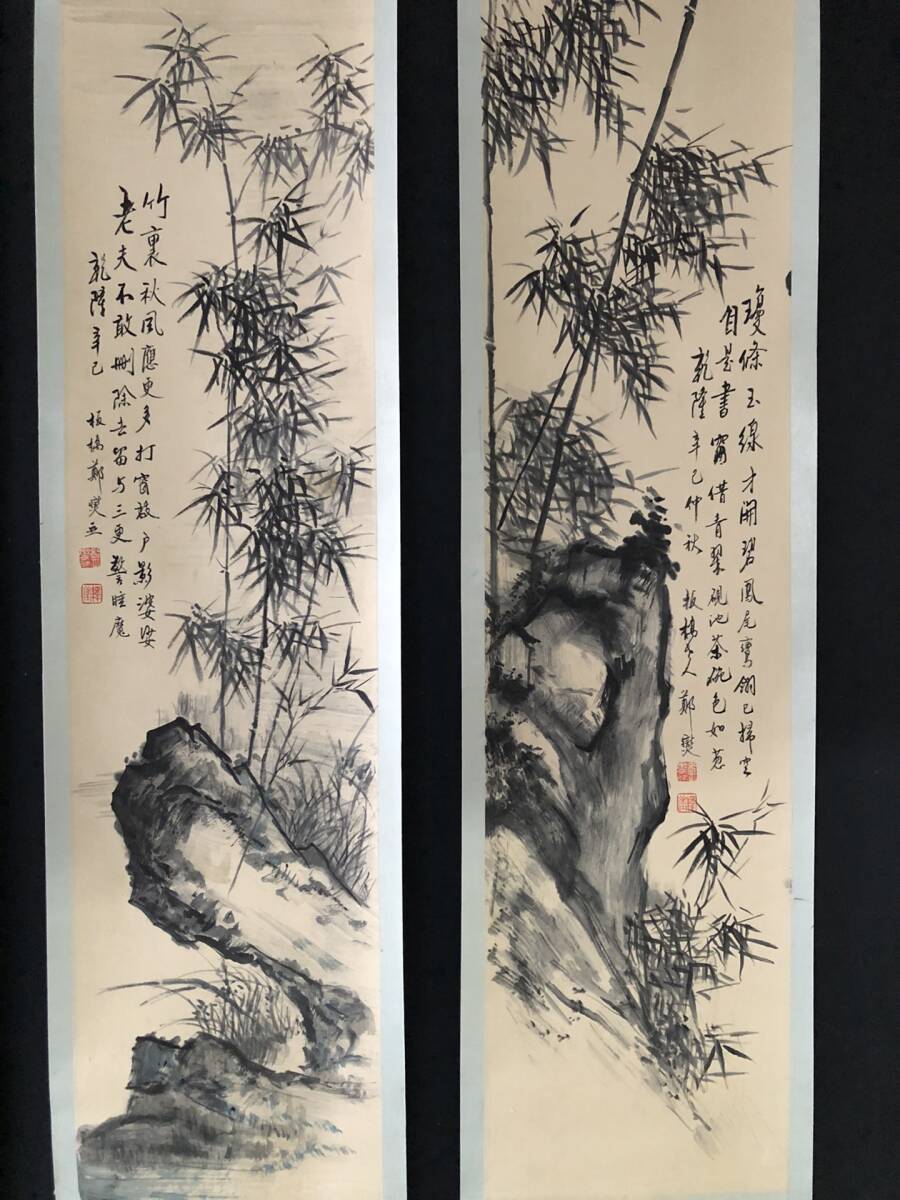 瓊條玉線才開碧鳳尾鸞翎已掃空
自是書窗借青翠硯池茶碗色如葱
乾隆辛巳仲秋 板橋老人鄭燮
竹裏秋風應更多打窗敲户影婆娑
老夫不敢刪除去留与三更警睡魔
乾隆辛巳 板橋鄭燮並